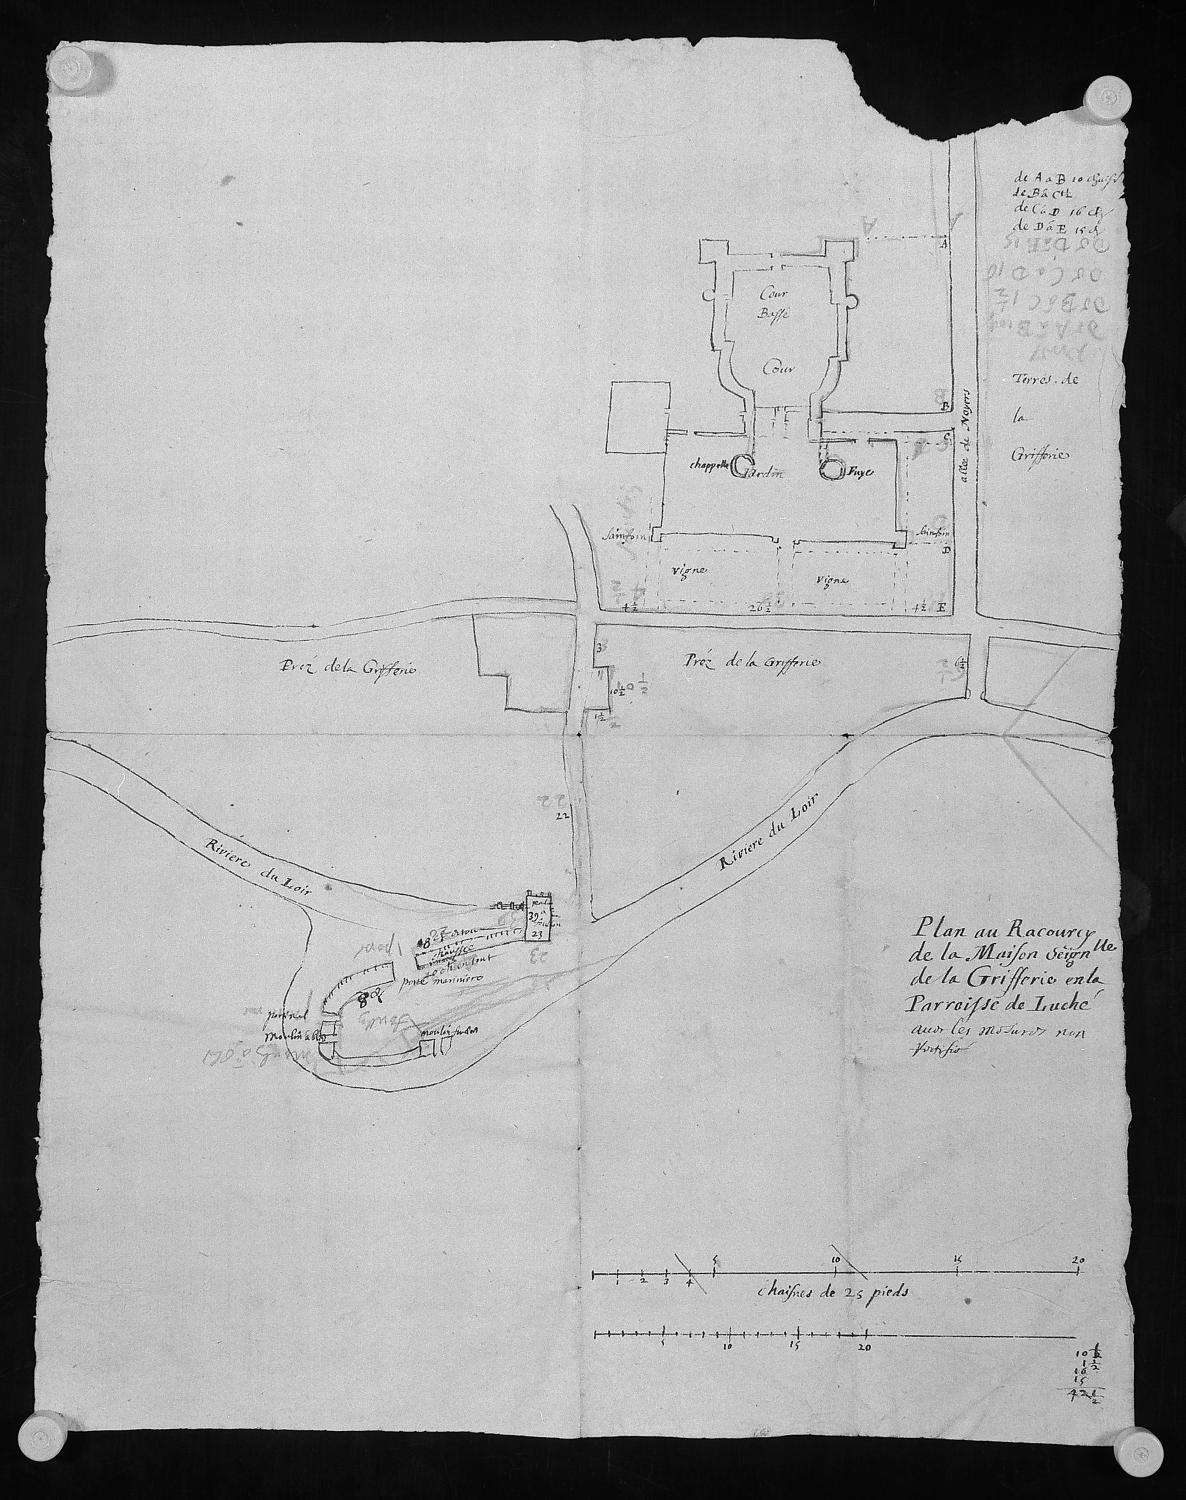 de A a B 10 chaisn
de B a C 1½
de C a D 16 ch
de D a E 15 ch
A
Cour
Basse
Cour
Terres de
la
Grifferie
B
C
allée de Noyers
chappelle
Jardin
Fuye
sainfoin
sainfoin
D
vigne
vigne
4½
26½
4½
E
3
Préz de la Grifferie
Préz de la Grifferie
6½
10½
1½
22
Riviere du Loir
Riviere du Loir
39
23
chaussée
porte mariniere
88
Moulin à bled
Plan au Racourcy
de la Maison Seignlle
de la Grifferie en la
Parroisse de Luché
avec les mesures non
5 10 15 20
1 2 3 4
chaisnes de 25 pieds
5 10 15 20
10½
1½
16
15
42½